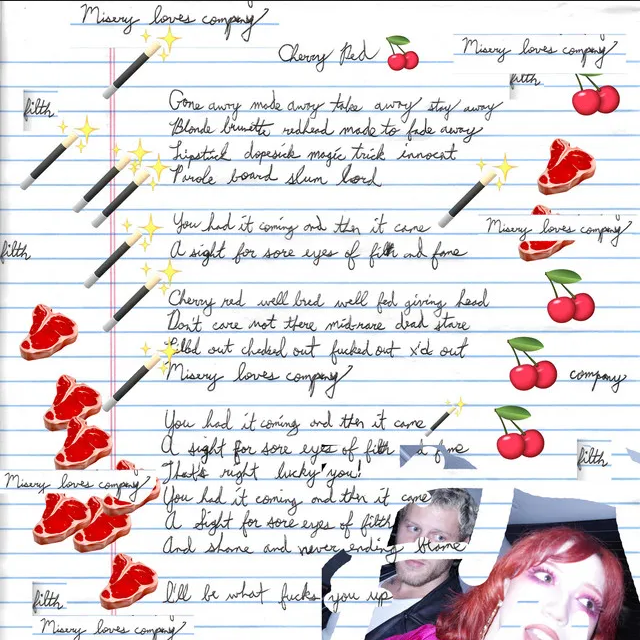 Misery loves company
Cherry Red
Misery loves company
filth
filth
Gone away made away take away stay away
Blonde brunette redhead made to fade away
Lipstick dopesick magic trick innocent
Parole board slum lord
You had it coming and then it came
Misery loves company
A sight for sore eyes of filth and fame
filth
Cherry red well bred well fed giving head
Don't care not there mid-rare dead stare
out checked out fucked out x'd out
Misery loves company
company
You had it coming and then it came
A sight for sore eyes of filth d fme
filth
That's right lucky you!
Misery loves company
You had it coming and then it came
A Sight for sore eyes of filth
And shame and never ending blame
I'll be what fucks you up
filth
Misery loves company